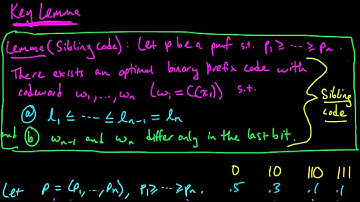 Key Lemma
Lemma (Sibling code): Let p be a pmf s.t. p₁ ≥ ⋯ ≥ pₙ.
There exists an optimal binary prefix code with
codeword w₁,…,wₙ (wᵢ = C(xᵢ)) s.t.
ⓐ l₁ ≤ ⋯ ≤ lₙ₋₁ = lₙ
and ⓑ wₙ₋₁ and wₙ differ only in the last bit.
Sibling
code
0 10 110 111
Let p = (p₁,…,pₙ), p₁≥⋯≥pₙ. .5 .3 .1 .1